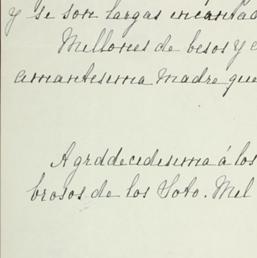 y se son largas encantad
Millones de besos y e
amantesima madre que
Agrddecedesima á los
brosos de los Soto. Mel